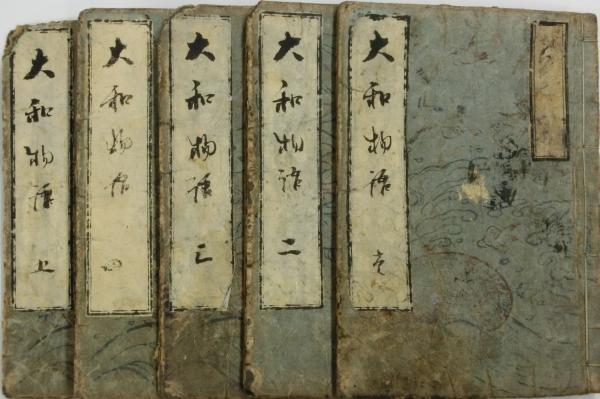 大和物語 壱
大和物語 二
大和物語 三
大和物語 四
大和物語 五